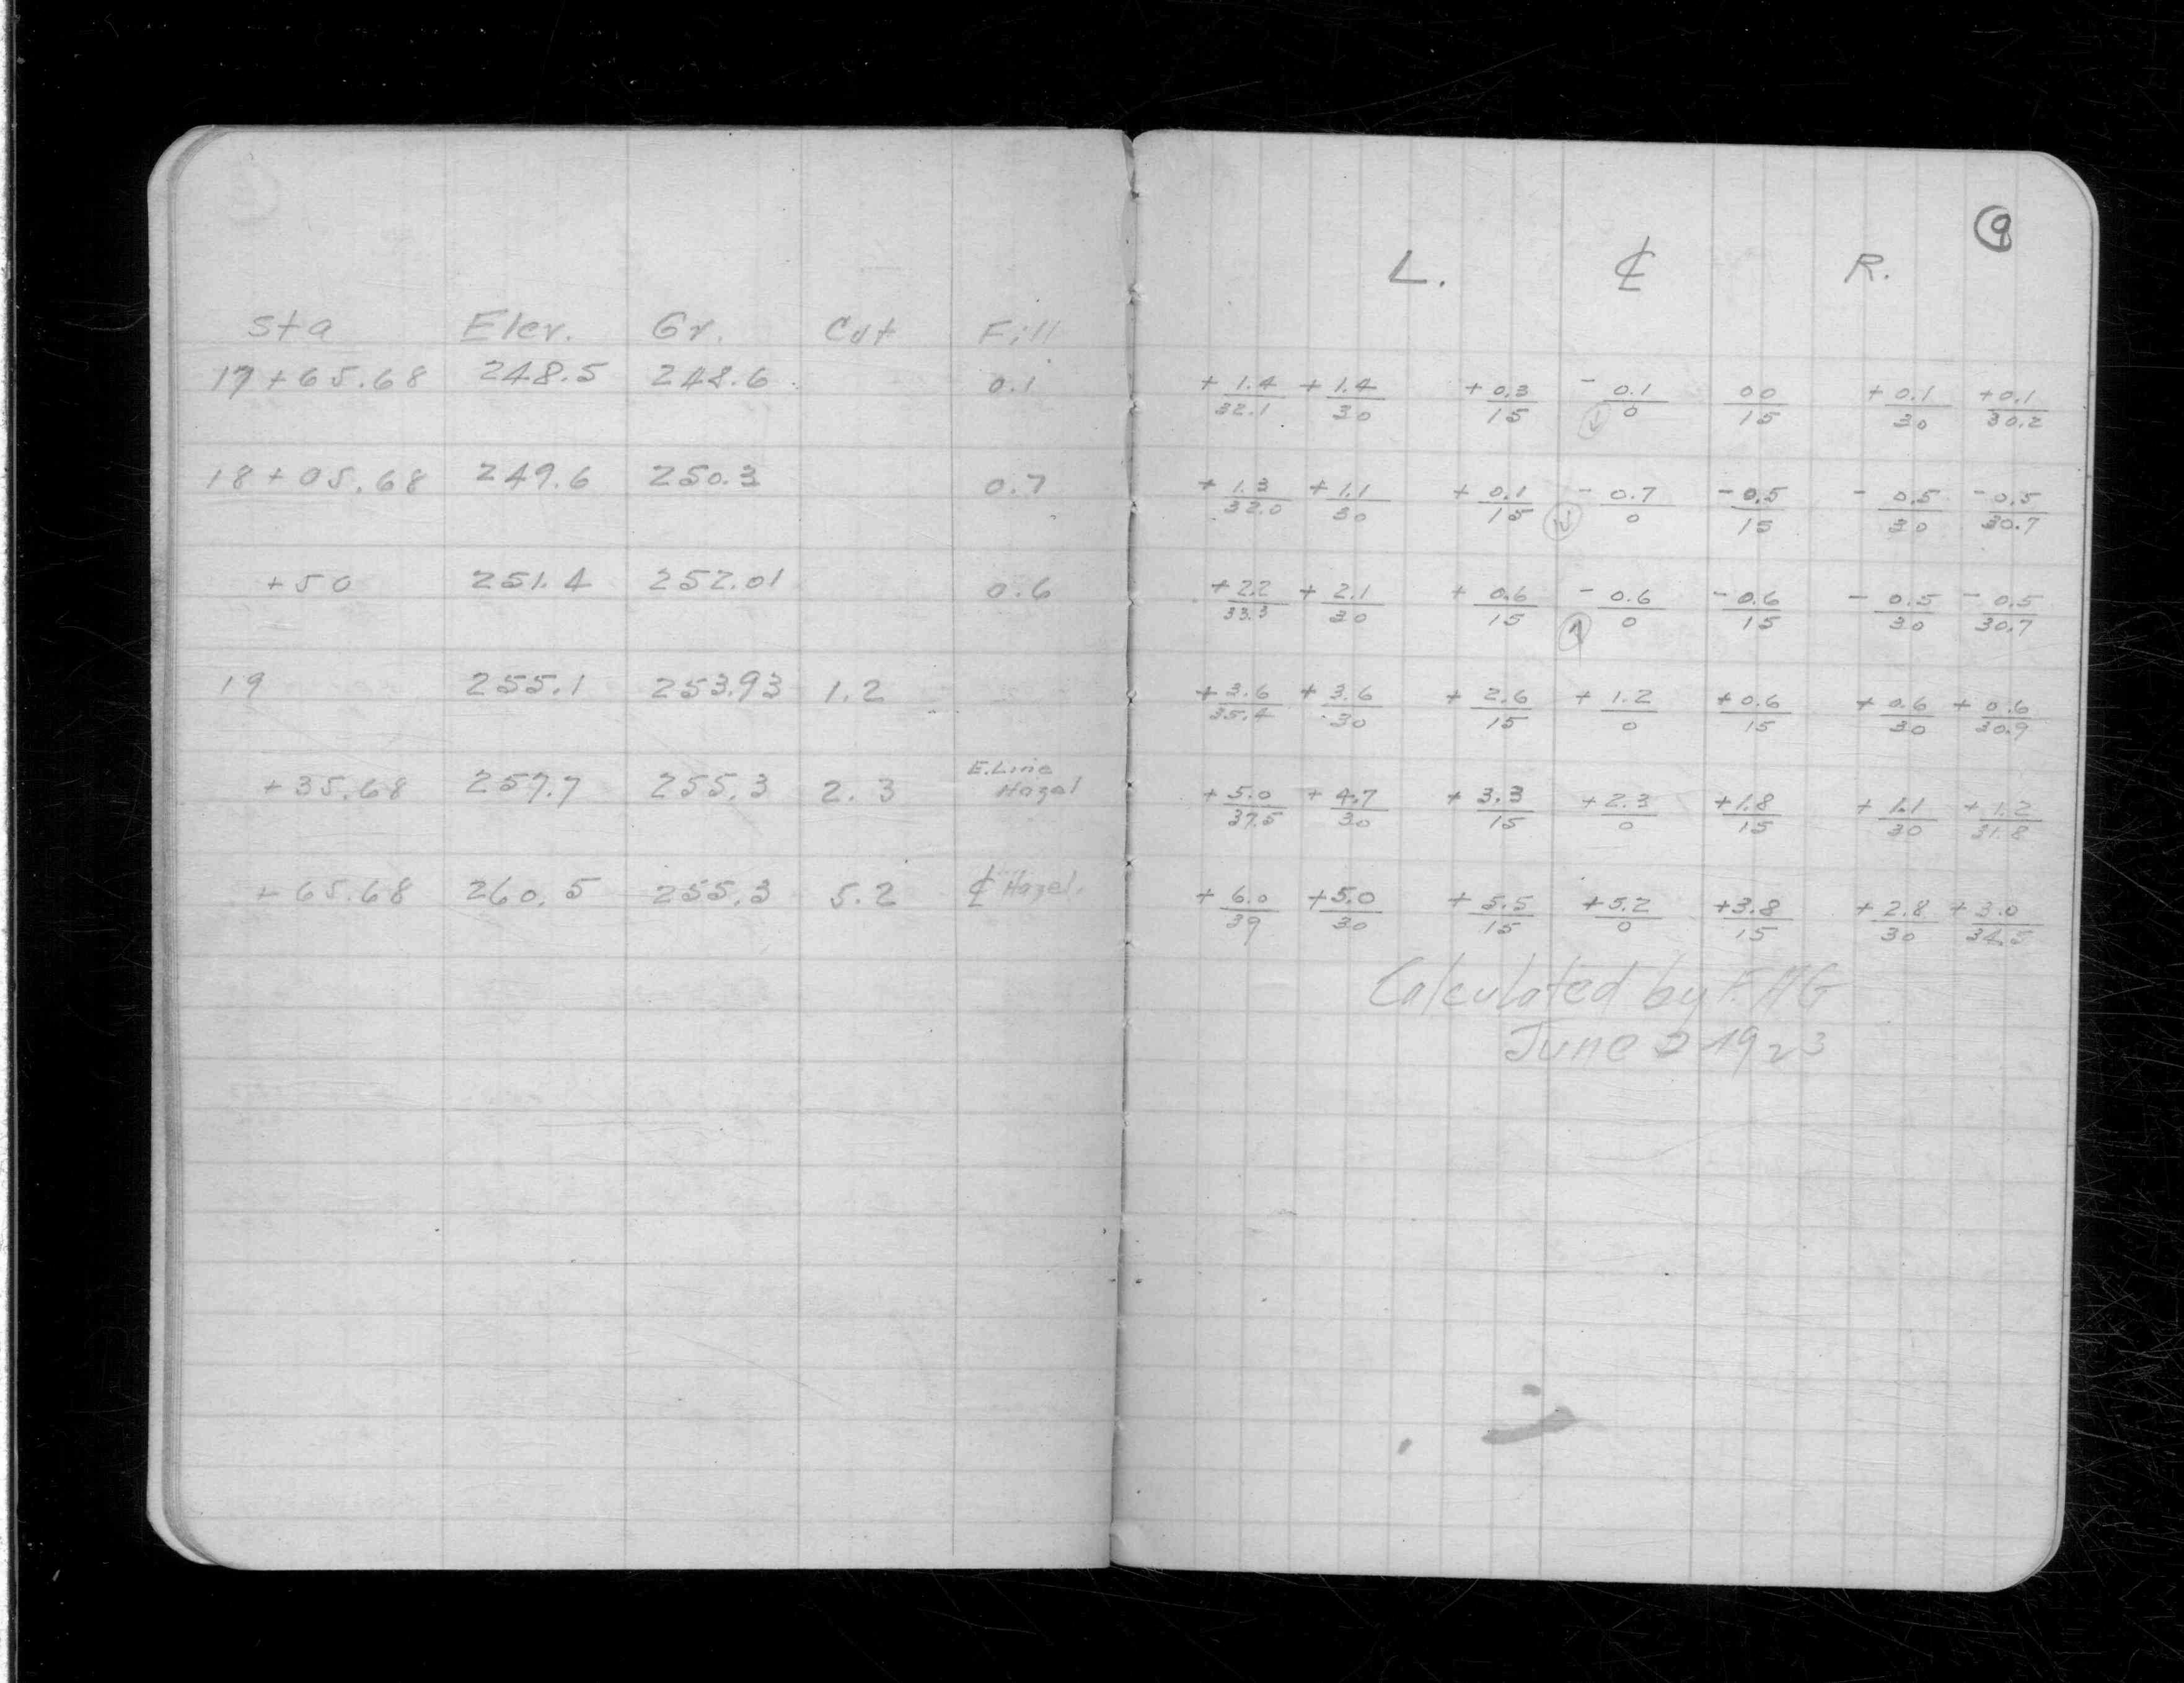 9
L. ℄ R.
Sta Elev. Gr. Cut Fill
17+65.68 248.5 248.6 0.1 +1.4/32.1 +1.4/30 +0.3/15 -0.1/0 00/15 +0.1/30 +0.1/30.2
18+05.68 249.6 250.3 0.7 +1.3/32.0 +1.1/30 +0.1/15 -0.7/0 -0.5/15 -0.5/30 -0.5/30.7
+50 251.4 252.01 0.6 +2.2/33.3 +2.1/30 +0.6/15 -0.6/0 -0.6/15 -0.5/30 -0.5/30.7
19 255.1 253.93 1.2 +3.6/35.4 +3.6/30 +2.6/15 +1.2/0 +0.6/15 +0.6/30 +0.6/30.9
+35.68 257.7 255.3 2.3 E. Line Hazel +5.0/37.5 +4.7/30 +3.3/15 +2.3/0 +1.8/15 +1.1/30 +1.2/31.8
+65.68 260.5 255.3 5.2 ℄ Hazel. +6.0/39 +5.0/30 +5.5/15 +5.2/0 +3.8/15 +2.8/30 +3.0/34.5
Calculated by FHG
June 2 1923